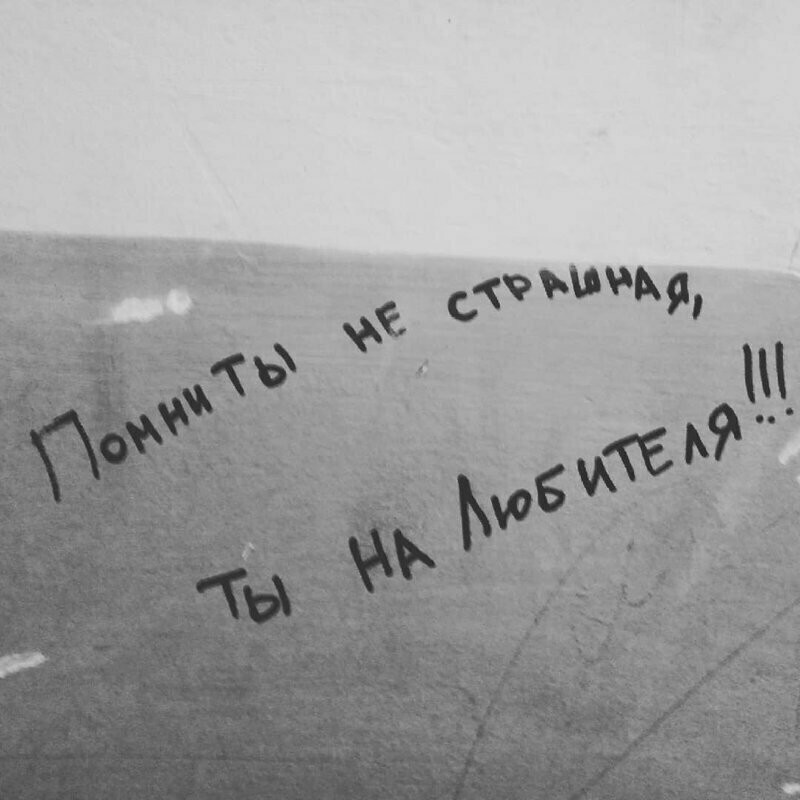 Помни ты не страшная,
ты на любителя!!!